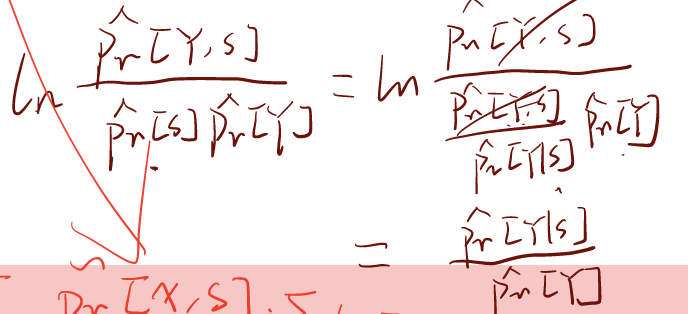 ln \frac{\hat{Pr}[Y,S]}{\hat{Pr}[S]\hat{Pr}[Y]} = ln \frac{\hat{Pr}[Y,S]}{\frac{\hat{Pr}[Y,S]}{\hat{Pr}[Y|S]}\hat{Pr}[Y]}
= \frac{\hat{Pr}[Y|S]}{\hat{Pr}[Y]}
Pr[X,S].